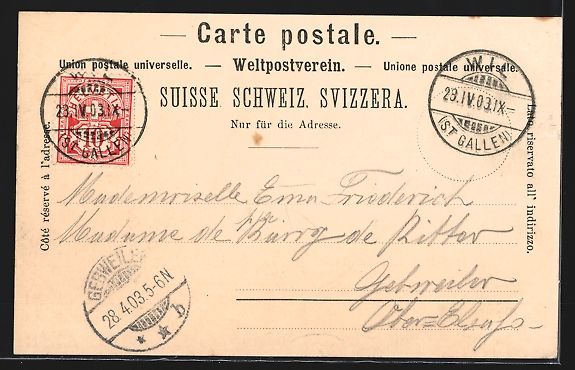 — Carte postale. —
Union postale universelle. — Weltpostverein. — Unione postale universale.
SUISSE. SCHWEIZ. SVIZZERA.
Nur für die Adresse.
Côté réservé à l'adresse.
Lato riservato all' indirizzo.
HELVETIA
10
WIL
29.IV.03.IX–
(ST GALLEN)
WIL
29.IV.03.IX–
(ST GALLEN)
Mademoiselle Emma Friederich
Madame de
de Ritter
Gebweiler
Ober-Elsass
GEBWEILER
28.4.03.5-6N
* * b